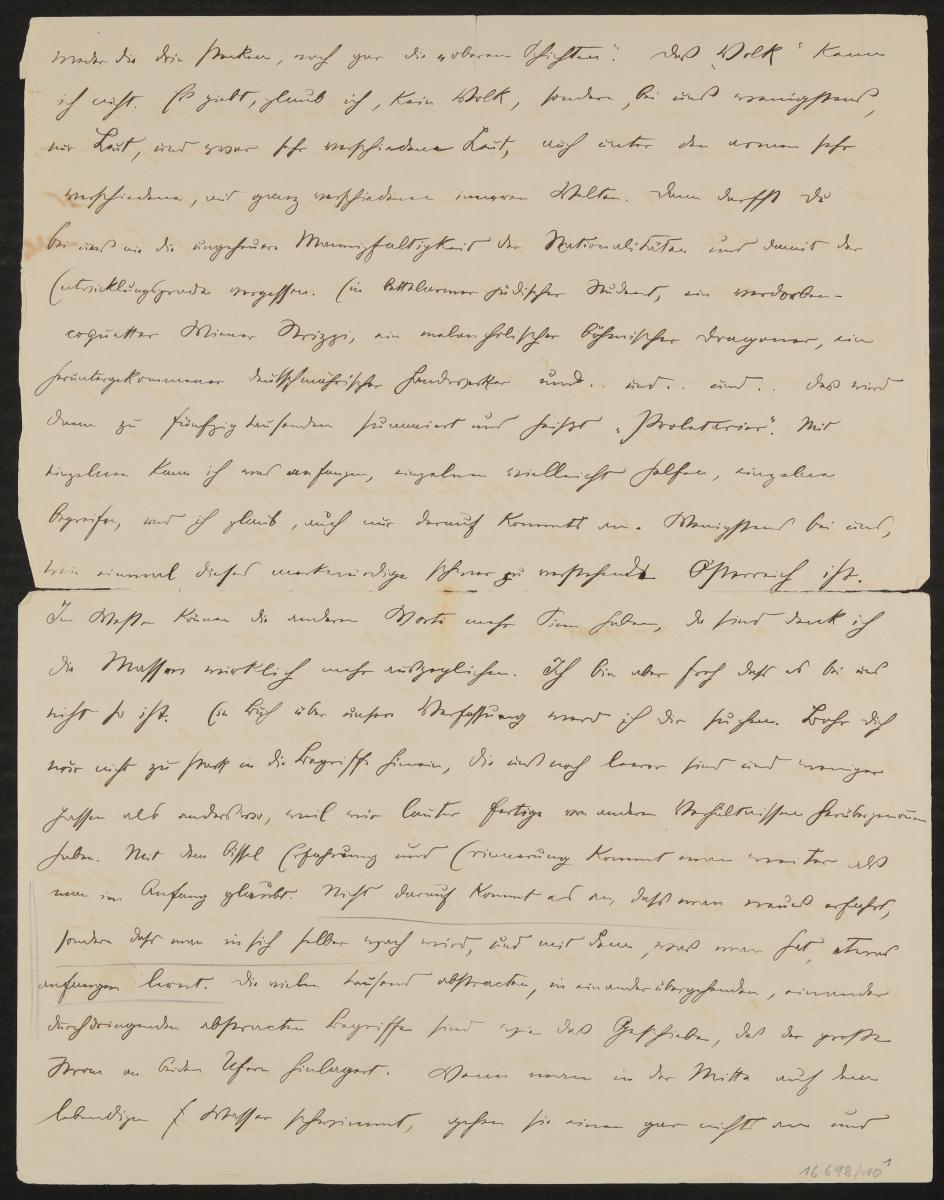 weder die drei starken, noch gar die „oberen Schichten". Das „Volk" kenn
ich nicht. Es giebt, glaub ich, kein Volk, sondern, bei uns wenigstens,
nur Leut, und zwar sehr verschiedene Leut, auch unter den armen sehr
verschiedene, mit ganz verschiedenen inneren Welten. Dann darfst Du
bei uns nie die ungeheuere Mannigfaltigkeit der Nationalitäten und damit der
Entwicklungsgrade vergessen. Ein bettelarmer jüdischer Student, ein verdorben-
coquetter Wiener Strizzi, ein melancholischer böhmischer Dragoner, ein
heruntergekommener deutschmährischer Handwerker und.. und.. und.. das wird
dann zu fünfzigtausenden summiert und heißt „Proletarier". Mit
einzelnen kann ich was anfangen, einzelnen vielleicht helfen, einzelne
begreifen, und ich glaub, auch nur darauf kommts an. Wenigstens bei uns,
wie einmal dieses merkwürdige schwer zu verstehende Österreich ist.
Im Westen können die anderen Worte mehr Sinn haben, da sind denk ich
die Massen wirklich mehr ausgeglichen. Ich bin aber froh dass es bei uns
nicht so ist. Ein Buch über unsere Verfassung werd ich dir suchen. Bohr dich
nur nicht zu stark in die Begriffe hinein, die uns noch leerer sind und weniger
passen als anderswo, weil wir lauter fertige von andern Verhältnissen herübergenommen
haben. Mit dem bissel Erfahrung und Erinnerung kommt man weiter als
man im Anfang glaubt. Nicht darauf kommt es an, dass man neues erfahrt,
sondern dass man in sich selber wach wird, und mit dem, was man hat, etwas
anfangen lernt. Die vielen tausend abstracten, in einander übergehenden, einander
durchdringenden abstracten Begriffe sind wie das Geschiebe, das der große
Strom an beiden Ufern hinlagert. Wenn man in der Mitte auf dem
lebendigen Wasser schwimmt, gehen sie einen gar nichts an und
16698/10 1